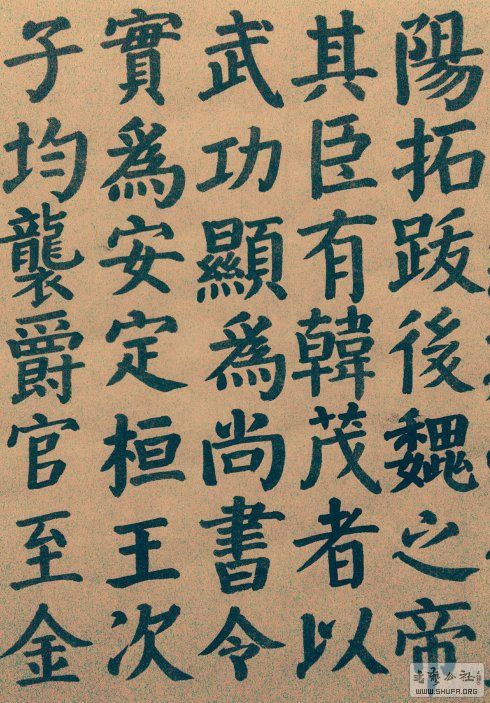 陽拓跋後魏之帝
其臣有韓茂者以
武功顯為尚書令
實為安定桓王次
子均襲爵官至金
WWW.SHUFA.ORG